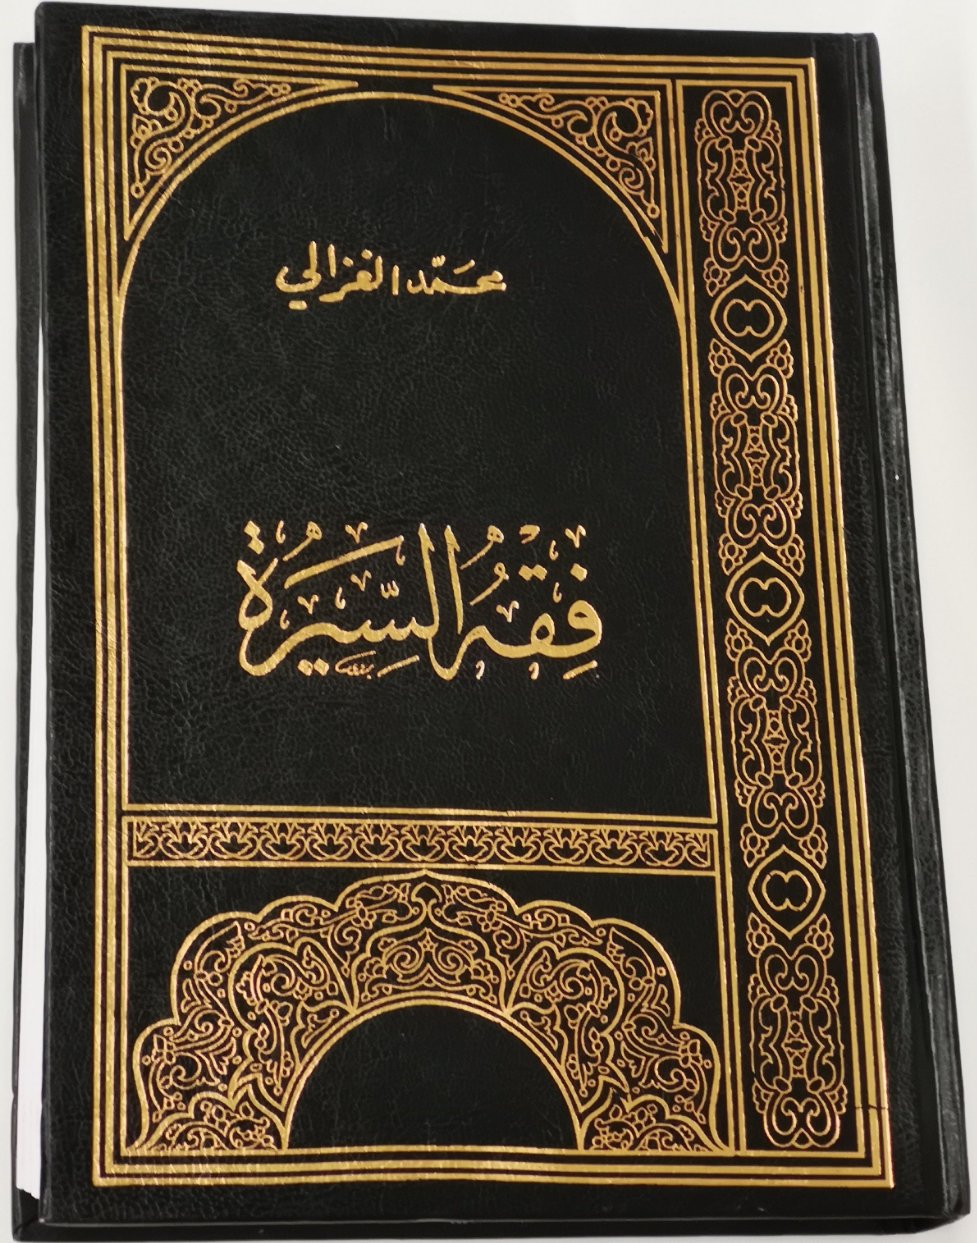 محمد الغزالي
فِقْهُ السِّيرَة